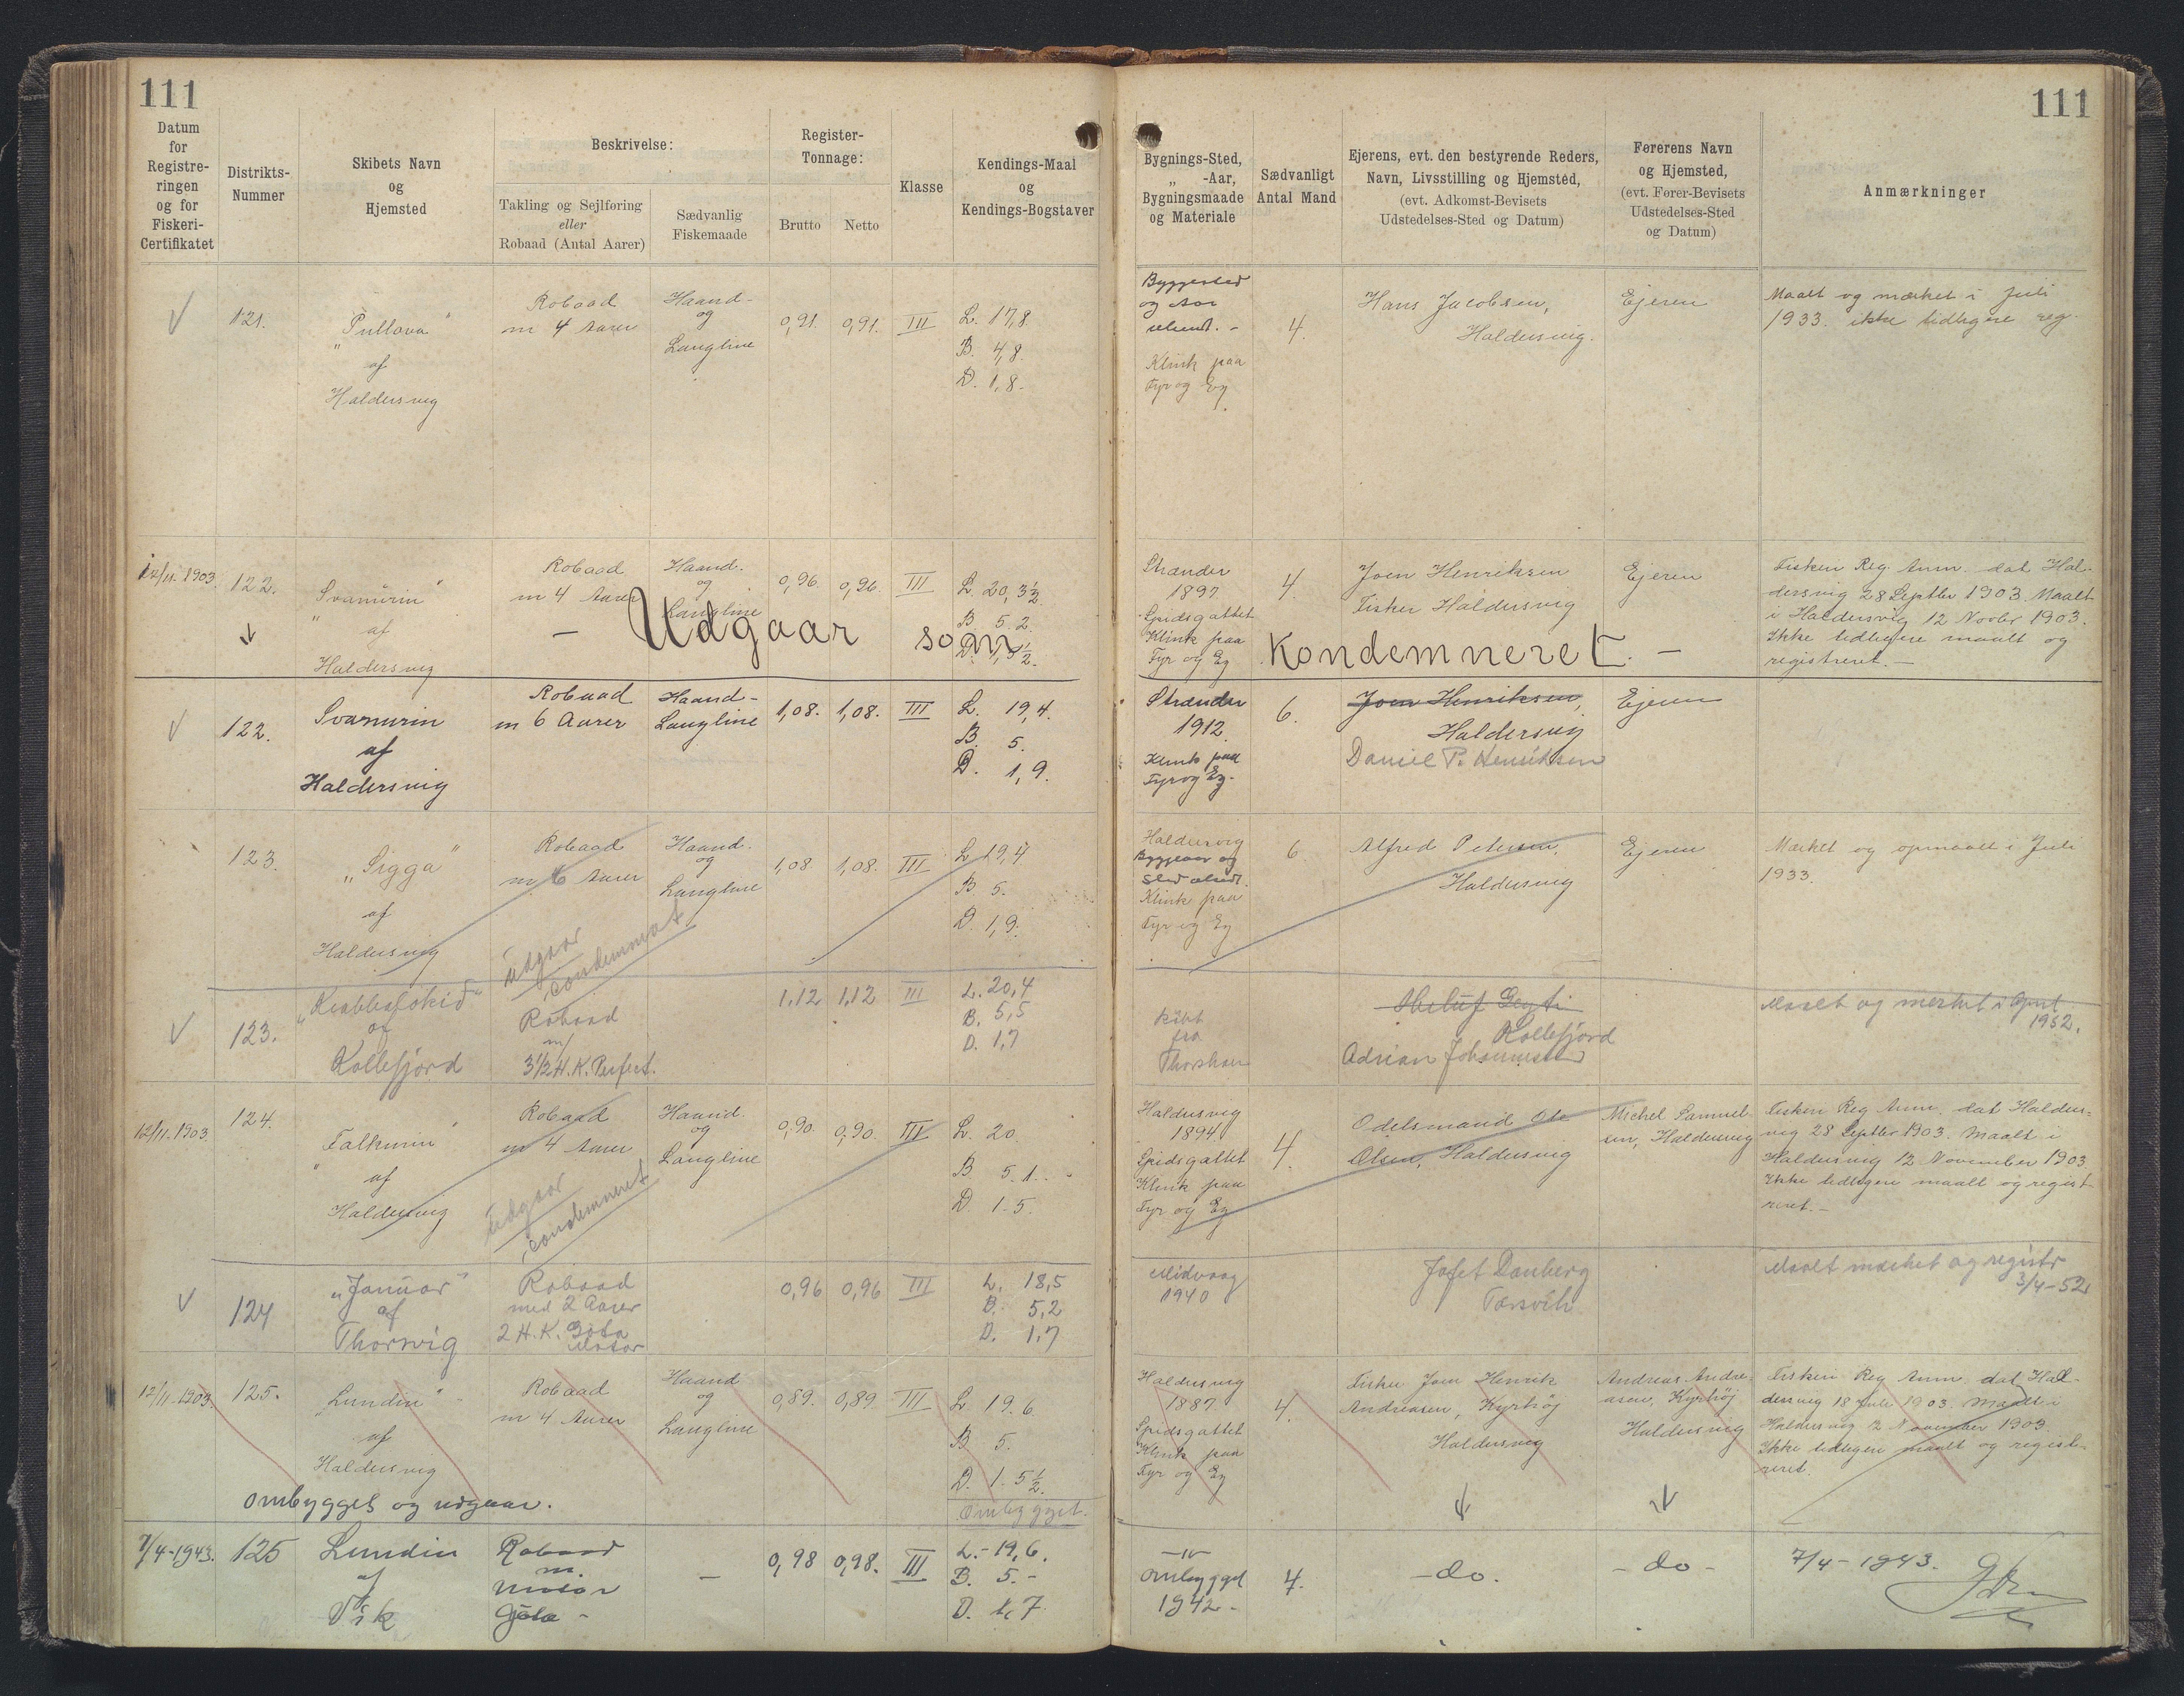 111
111
Datum
for
Registre-
ringen
og for
Fiskeri-
Certifikatet
Distrikts-
Nummer
Skibets Navn
og
Hjemsted
Beskrivelse:
Takling og Sejlføring
eller
Robaad (Antal Aarer)
Sædvanlig
Fiskemaade
Register-
Tonnage:
Brutto
Netto
Klasse
Kendings-Maal
og
Kendings-Bogstaver
Bygnings-Sted,
„ -Aar,
Bygningsmaade
og Materiale
Sædvanligt
Antal Mand
Ejerens, evt. den bestyrende Reders,
Navn, Livsstilling og Hjemsted,
(evt. Adkomst-Bevisets
Udstedelses-Sted og Datum)
Førerens Navn
og Hjemsted,
(evt. Fører-Bevisets
Udstedelses-Sted
og Datum)
Anmærkninger
121.
af
Haldersvig
Robaad
m 4 Aarer
Haand-
og
Langline
0,91. 0,91. III
L. 17,8.
B. 4,8.
D. 1,8.
Byggested
og Aar
ubent. -
Klink paa
Fyr og Eg
4.
Hans Jacobsen,
Haldersvig.
Ejeren
Maalt og mærket i Juli
1933. ikke tidligere reg.
12/11. 1903. 122.
„Svanurin"
af
Haldersvig
Robaad
m 4 Aarer
Haand.
og
Langline
0,96. 0,96. III
L. 20, 3½
B. 5. 2.
Strander
1897
Spidsgattet
Klink paa
Fyr og Eg
4.
Joen Henriksen
Fisker Haldersvig
Ejeren
Fiskeri Reg. Anm. dat Hal-
dersvig 28 Septbr 1903. Maalt
i Haldersvig 12 Novbr 1903.
Ikke tidligere maalt og
registreret. —
— Udgaar som Kondemneret. —
122.
Svanurin
af
Haldersvig
Robaad
m 6 Aarer
Haand-
Langline
1,08. 1,08. III
L. 19,4.
B. 5.
D. 1,9.
Strander
1912.
Klink paa
Fyr og Eg.
6.
Joen Henriksen,
Haldersvig
Daniel P. Henriksen
Ejeren
123.
„Sigga"
af
Haldersvig
Robaad
m 6 Aarer
Haand.
og
Langline
1,08 1,08. III
L. 19,4
B. 5.
D. 1,9.
Haldersvig
Byggeaar og
Klink paa
Fyr og Eg
6
Alfred Petersen,
Haldersvig
Ejeren
Mærket og opmaalt i Juli
1933.
udgaar
condemneret
123.
af
Kollefjord
Robaad
m/
3½ H.K. Perfect.
1,12 1,12 III
L. 20,4
B. 5,5
D. 1,7
købt
fra
Thorshavn
Kollefjord
Adrian Johannesen
Maalt og mærket i April
1952.
12/11. 1903. 124.
„Falkurin"
af
Haldersvig
Robaad
m 4 Aarer
Haand.
og
Langline
0,90. 0,90. III
L. 20.
B. 5. 1. -
D. 1. 5.
Haldersvig
1894
Spidsgattet
Klink paa
Fyr og Eg
4.
Odelsmand Ole
Olsen, Haldersvig
Michel Samuel-
sen, Haldersvig
Fiskeri Reg Anm. dat Halders-
vig 28 Septbr 1903. Maalt i
Haldersvig 12 November 1903
Ikke tidligere maalt og regist-
reret. —
udgaar
condemneret
124
„Januar"
af
Thorsvig
Robaad
med 2 Aarer
2 H.K. Göta
Motor
0,96 0,96 III
L. 18,5
B. 5,2
D. 1,7
Midvaag
1940
Jafet Danberg
Torsvík
Maalt mærket og registr
3/4-52
12/11-1903. 125.
„Lundin"
af
Haldersvig
Robaad
m 4 Aarer
Haand
og
Langline
0,89. 0,89. III
L. 19. 6.
B. 5.
D. 1. 5½.
Ombygget.
Haldersvig
1887
Spidsgattet
Klink paa
Fyr og Eg
4.
Fisker Joen Henrik
Andreasen, Kyrhøj
Haldersvig
Andreas Andre-
asen, Kyrhøj
Haldersvig
Fiskeri Reg Anm. dat Hal-
dersvig 18 Juli 1903. Maalt i
Haldersvig 12 November 1903.
Ikke tidligere maalt og regist-
reret.
Ombygget og udgaar.
7/4-1943. 125
Lundin
af
Vik
Robaad
m.
Motor
Göta -
—
0,98 0,98. III
L. - 19,6.
B. 5. -
D. 1,7.
— " —
ombygget
1942 -
4.
- do.
- do -
7/4 - 1943.